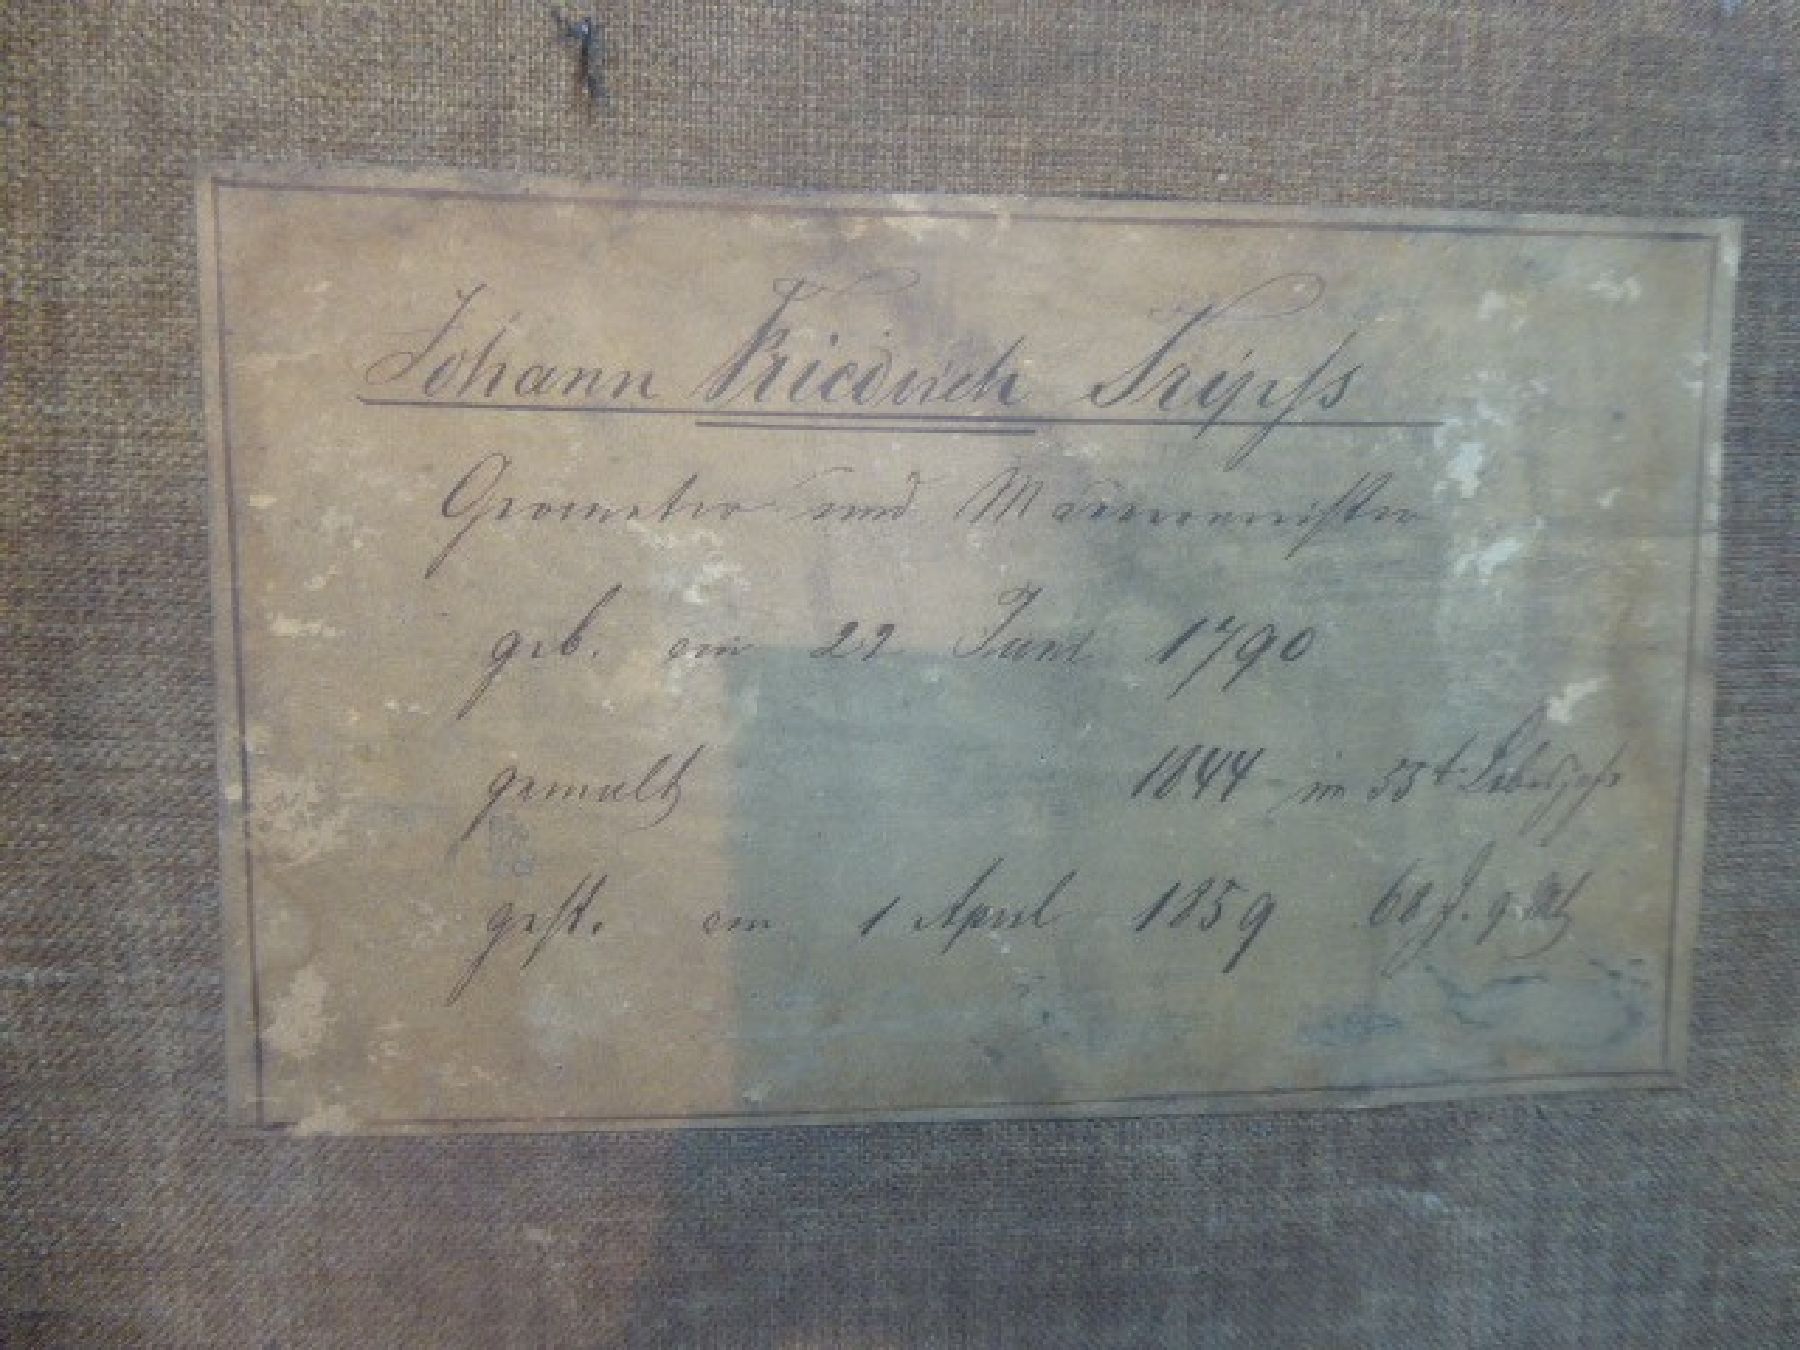 Johann Friedrich
Geometer und
geb. am 22 Juni 1790
gemalt 1844 im 55t Lebensj.
gest. am 1 April 1859 68 J. alt